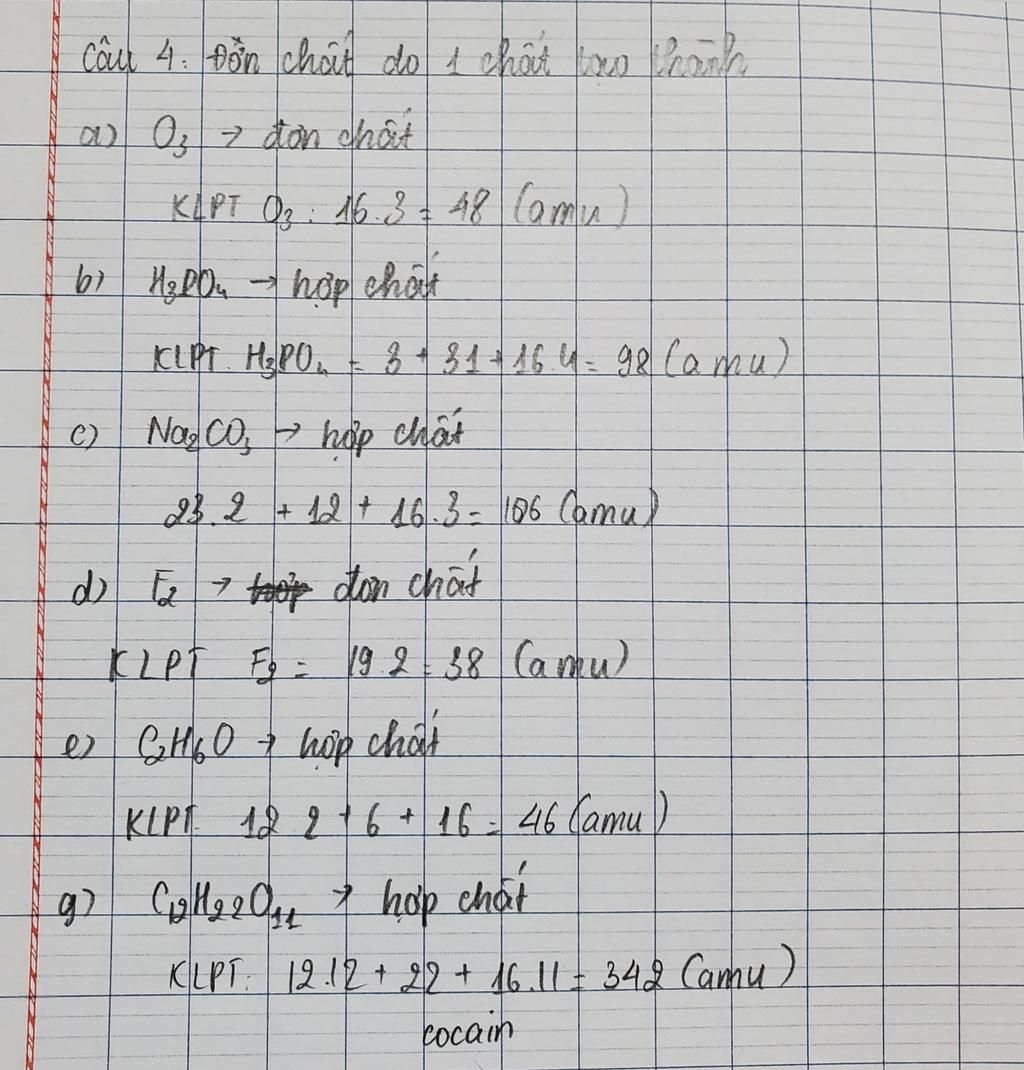 Câu 4: Đơn chất do 1 chất tạo thành
a) O₃ → đơn chất
KLPT O₃: 16.3 = 48 (amu)
b) H₃PO₄ → hợp chất
KLPT. H₃PO₄ = 3 + 31 + 16.4 = 98 (amu)
c) Na₂CO₃ → hợp chất
23.2 + 12 + 16.3 = 106 (amu)
d) F₂ → đơn chất
KLPT F₂ = 19.2 = 38 (amu)
e) C₂H₆O → hợp chất
KLPT. 12 2 + 6 + 16 = 46 (amu)
g) C₁₂H₂₂O₁₁ → hợp chất
KLPT: 12.12 + 22 + 16.11 = 342 (amu)
cocain